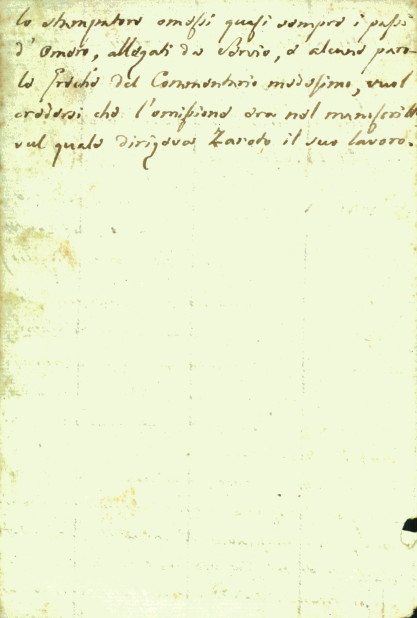 lo stampatore omessi quasi sempre i passi
d' Omero, allegati da Servio, e alcune paro-
le Greche del Commentario medesimo, vuol
credersi che l'omissione era nel manuscritto
sul quale dirigeva Zaroto il suo lavoro.